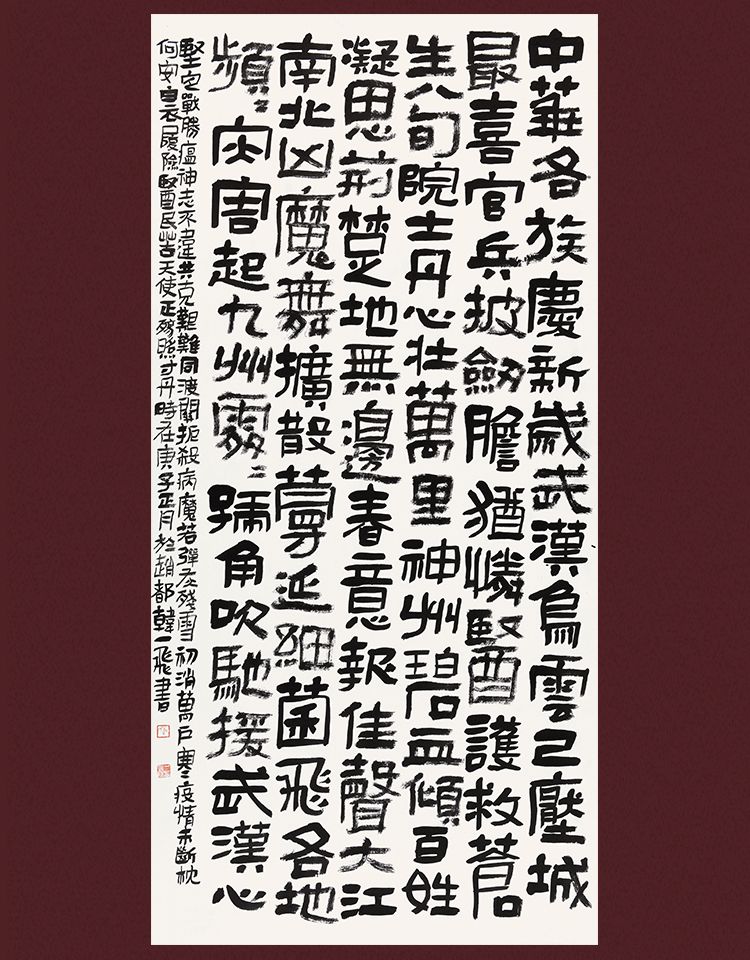 中華各族慶新歲武漢烏雲已壓城
最喜官兵披劍膽猶憐醫護救蒼
生八旬院士丹心壯萬里神州碧血傾百姓
凝思荊楚地無邊春意報佳聲大江
南北凶魔舞擴散蔓延細菌飛各地
頻〻灾害起九州處〻號角吹馳援武漢心
堅定戰勝瘟神志不違共克艱難同渡關扼殺病魔若彈丸殘雪初消萬戶寒疫情未斷枕
何安白衣履險醫民苦天使正照寸丹時在庚子正月於趙都韓一飛書